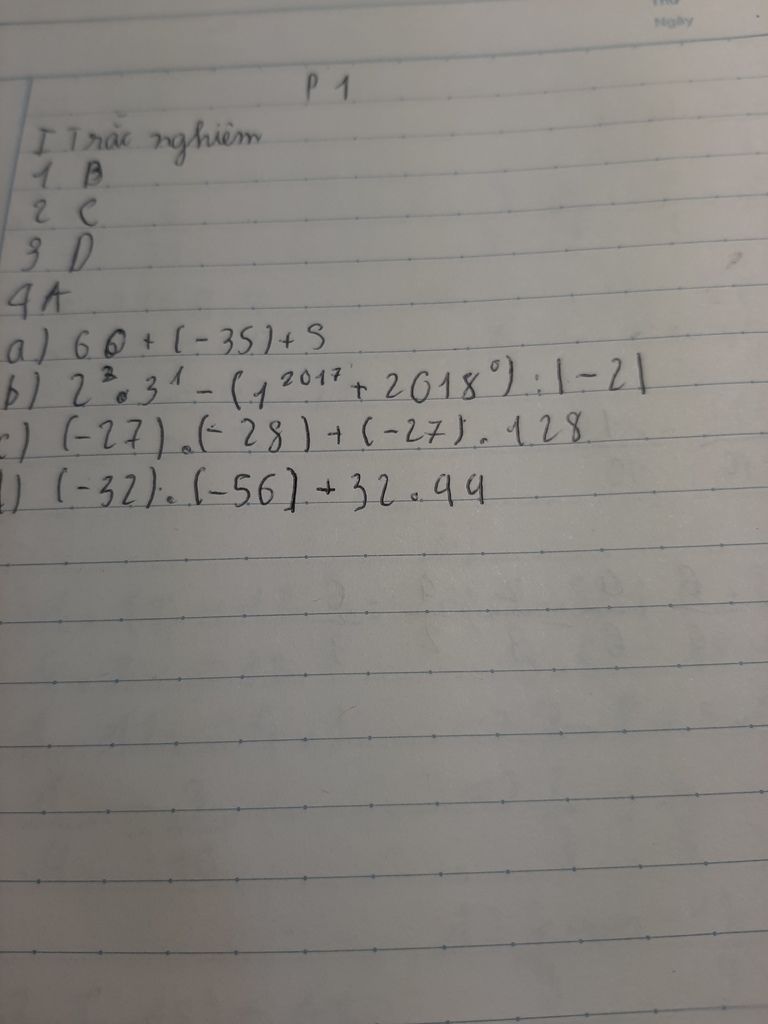 Ngày
P 1
I Trắc nghiêm
1 B
2 C
3 D
4 A
a) 60 + (-35) + 5
b) 2³ . 3¹ - (1²⁰¹⁷ + 2018⁰) : |-2|
c) (-27) . (-28) + (-27) . 128
) (-32) . (-56) + 32 . 44